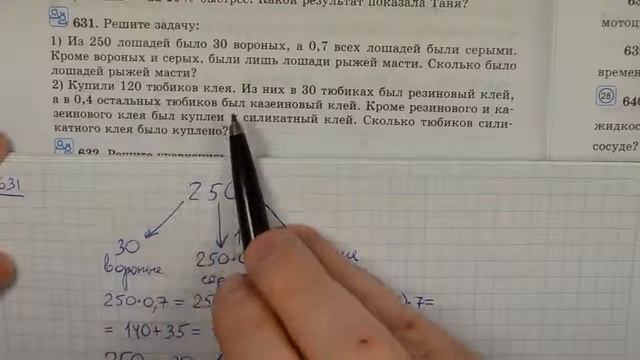 за 10% быстрее. Какой результат показала Таня?
631. Решите задачу:
1) Из 250 лошадей было 30 вороных, а 0,7 всех лошадей были серыми.
Кроме вороных и серых, были лишь лошади рыжей масти. Сколько было
лошадей рыжей масти?
2) Купили 120 тюбиков клея. Из них в 30 тюбиках был резиновый клей,
а в 0,4 остальных тюбиков был казеиновый клей. Кроме резинового и ка-
зеинового клея был куплен и силикатный клей. Сколько тюбиков сили-
катного клея было куплено?
632. Решите
63
мотоц
времен
28
640
жидкос
сосуде?
631
250
30
вороные
250·0
сер
250·0,7 = 25
)·7=
= 140+35=